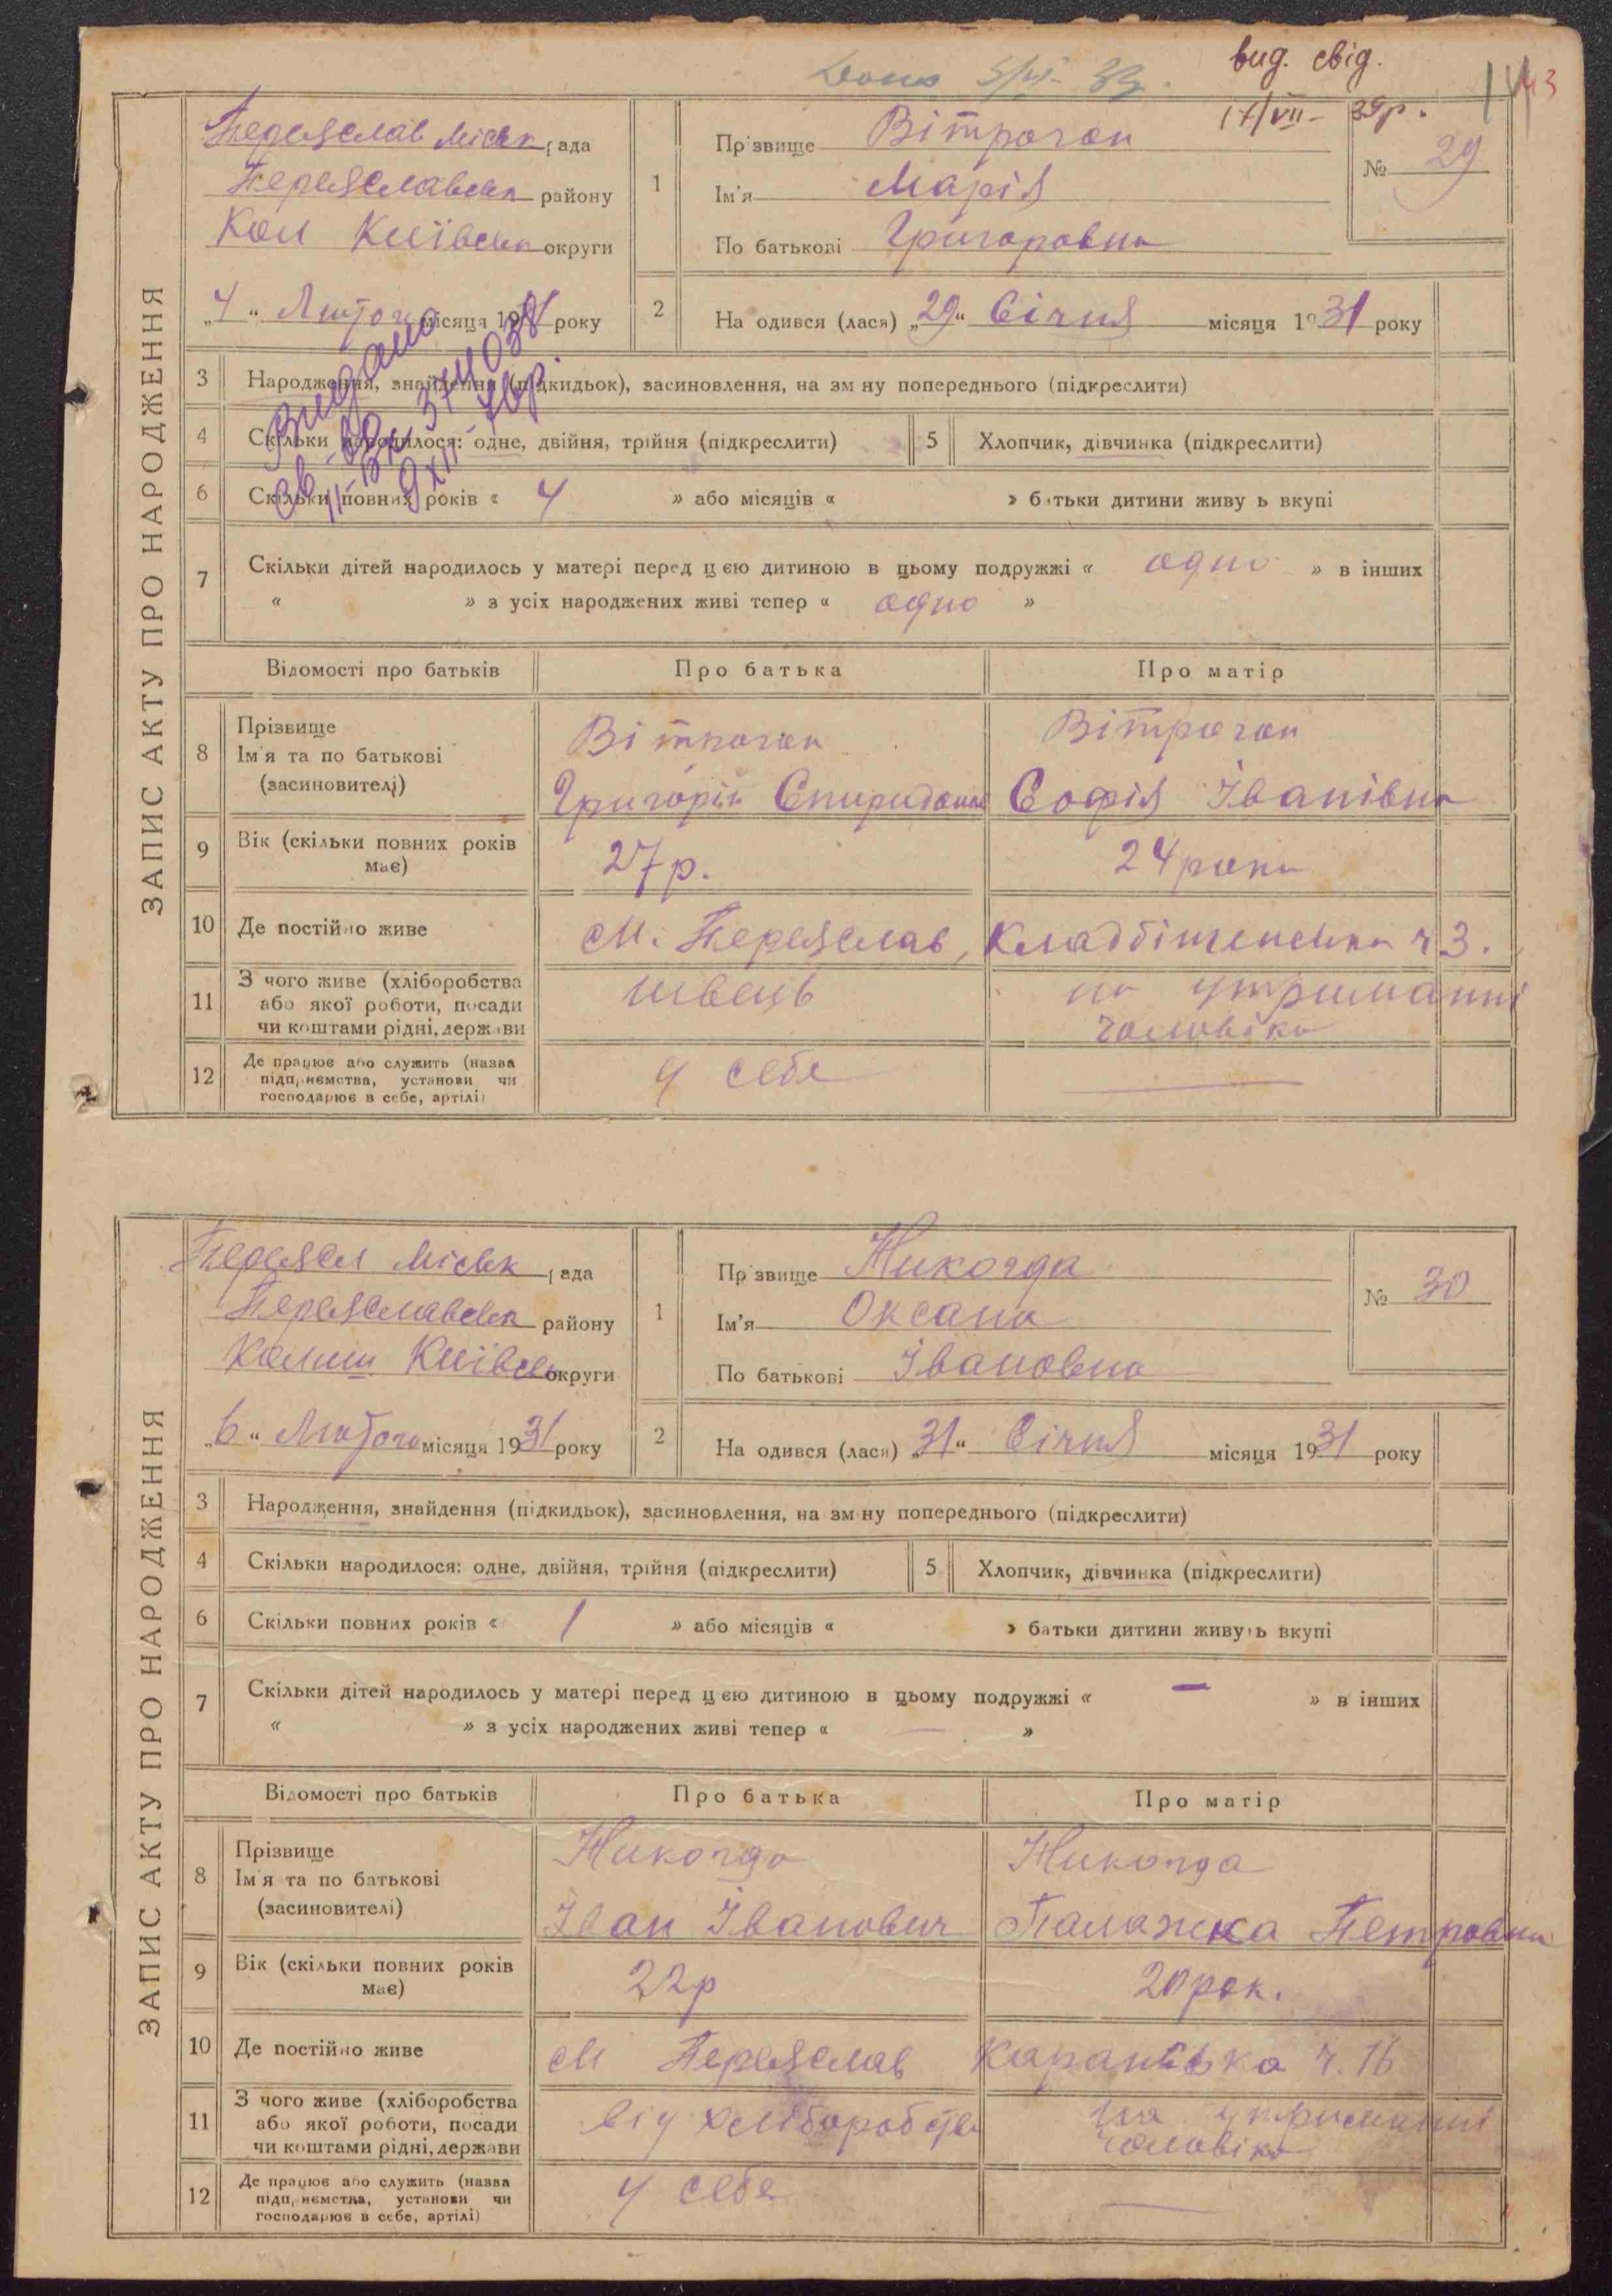 вид. свід.
17/VII - 39р.
ЗАПИС АКТУ ПРО НАРОДЖЕННЯ
Переяслав Міськ рада
Переяславськ району
Кол Київськ округи
„4“ Лютого місяця 1931 року
1
Прізвище Вітрочок
Ім'я Марія
По батькові Григоровна
№ 29
2
На одився (лася) „29“ Січня місяця 1931 року
Видано
3 Народження, знайдення (підкидьок), засиновлення, на зміну попереднього (підкреслити)
4 Скільки народилося: одне, двійня, трійня (підкреслити)
5 Хлопчик, дівчинка (підкреслити)
6 Скільки повних років « 4 » або місяців « » батьки дитини живуть вкупі
7 Скільки дітей народилось у матері перед цією дитиною в цьому подружжі « одно » в інших
« » з усіх народжених живі тепер « одно »
Відомості про батьків
Про батька
Про матір
8 Прізвище
Ім'я та по батькові
(засиновителі)
Вітрочок
Григорій Спиридонов
Вітрочок
Софія Іванівна
9 Вік (скільки повних років має)
27р.
24 роки
10 Де постійно живе
м. Переяслав, ч 3.
11 З чого живе (хліборобства
або якої роботи, посади
чи коштами рідні, держави
швець
на утриманні
чоловіка
12 Де працює або служить (назва
підприємства, установи чи
господарює в себе, артілі)
у себе
ЗАПИС АКТУ ПРО НАРОДЖЕННЯ
Переясл Міськ рада
Переяславськ району
Колиш Київськ округи
„6“ Лютого місяця 1931 року
1
Прізвище Никогда
Ім'я Оксана
По батькові Івановна
№ 30
2
На одився (лася) „31“ Січня місяця 1931 року
3 Народження, знайдення (підкидьок), засиновлення, на зміну попереднього (підкреслити)
4 Скільки народилося: одне, двійня, трійня (підкреслити)
5 Хлопчик, дівчинка (підкреслити)
6 Скільки повних років « 1 » або місяців « » батьки дитини живуть вкупі
7 Скільки дітей народилось у матері перед цією дитиною в цьому подружжі « — » в інших
« » з усіх народжених живі тепер « — »
Відомості про батьків
Про батька
Про матір
8 Прізвище
Ім'я та по батькові
(засиновителі)
Никогда
Іван Іванович
Никогда
Палажка Петровна
9 Вік (скільки повних років має)
22р
20 рок.
10 Де постійно живе
м Переяслав ч. 16
11 З чого живе (хліборобства
або якої роботи, посади
чи коштами рідні, держави
від хліборобства
на утриманні
чоловіка
12 Де працює або служить (назва
підприємства, установи чи
господарює в себе, артілі)
у себе